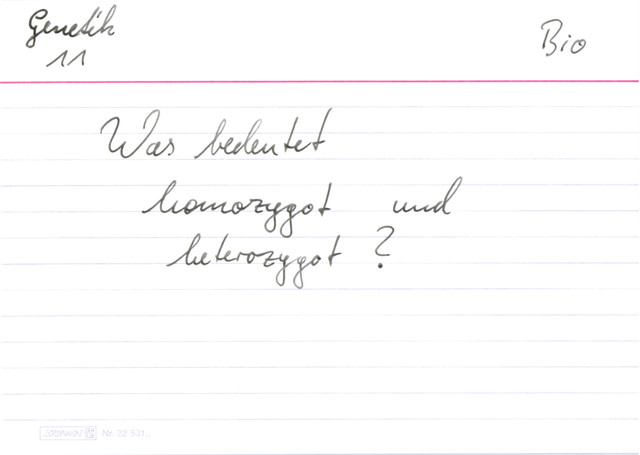 Genetik
11
Bio
Was bedeutet
homozygot und
heterozygot ?
Nr. 22 531